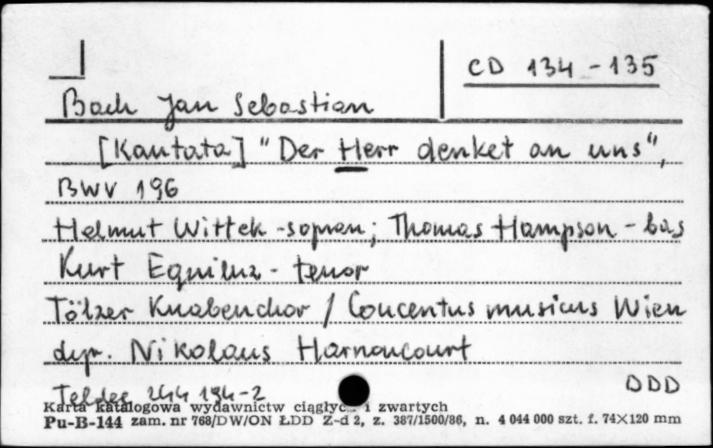 CD 134 - 135
Bach Jan Sebastian
[Kantata] "Der Herr denket an uns",
BWV 196
Helmut Wittek - sopran; Thomas Hampson - bas
Kurt Equiluz - tenor
Tölzer Knabenchor / Concentus musicus Wien
dyr. Nikolaus Harnoncourt
Teldec 244 194-2 DDD
Karta katalogowa wydawnictw ciągłych i zwartych
Pu-B-144 zam. nr 768/DW/ON ŁDD Z-d 2, z. 387/1500/86, n. 4 044 000 szt. f. 74×120 mm